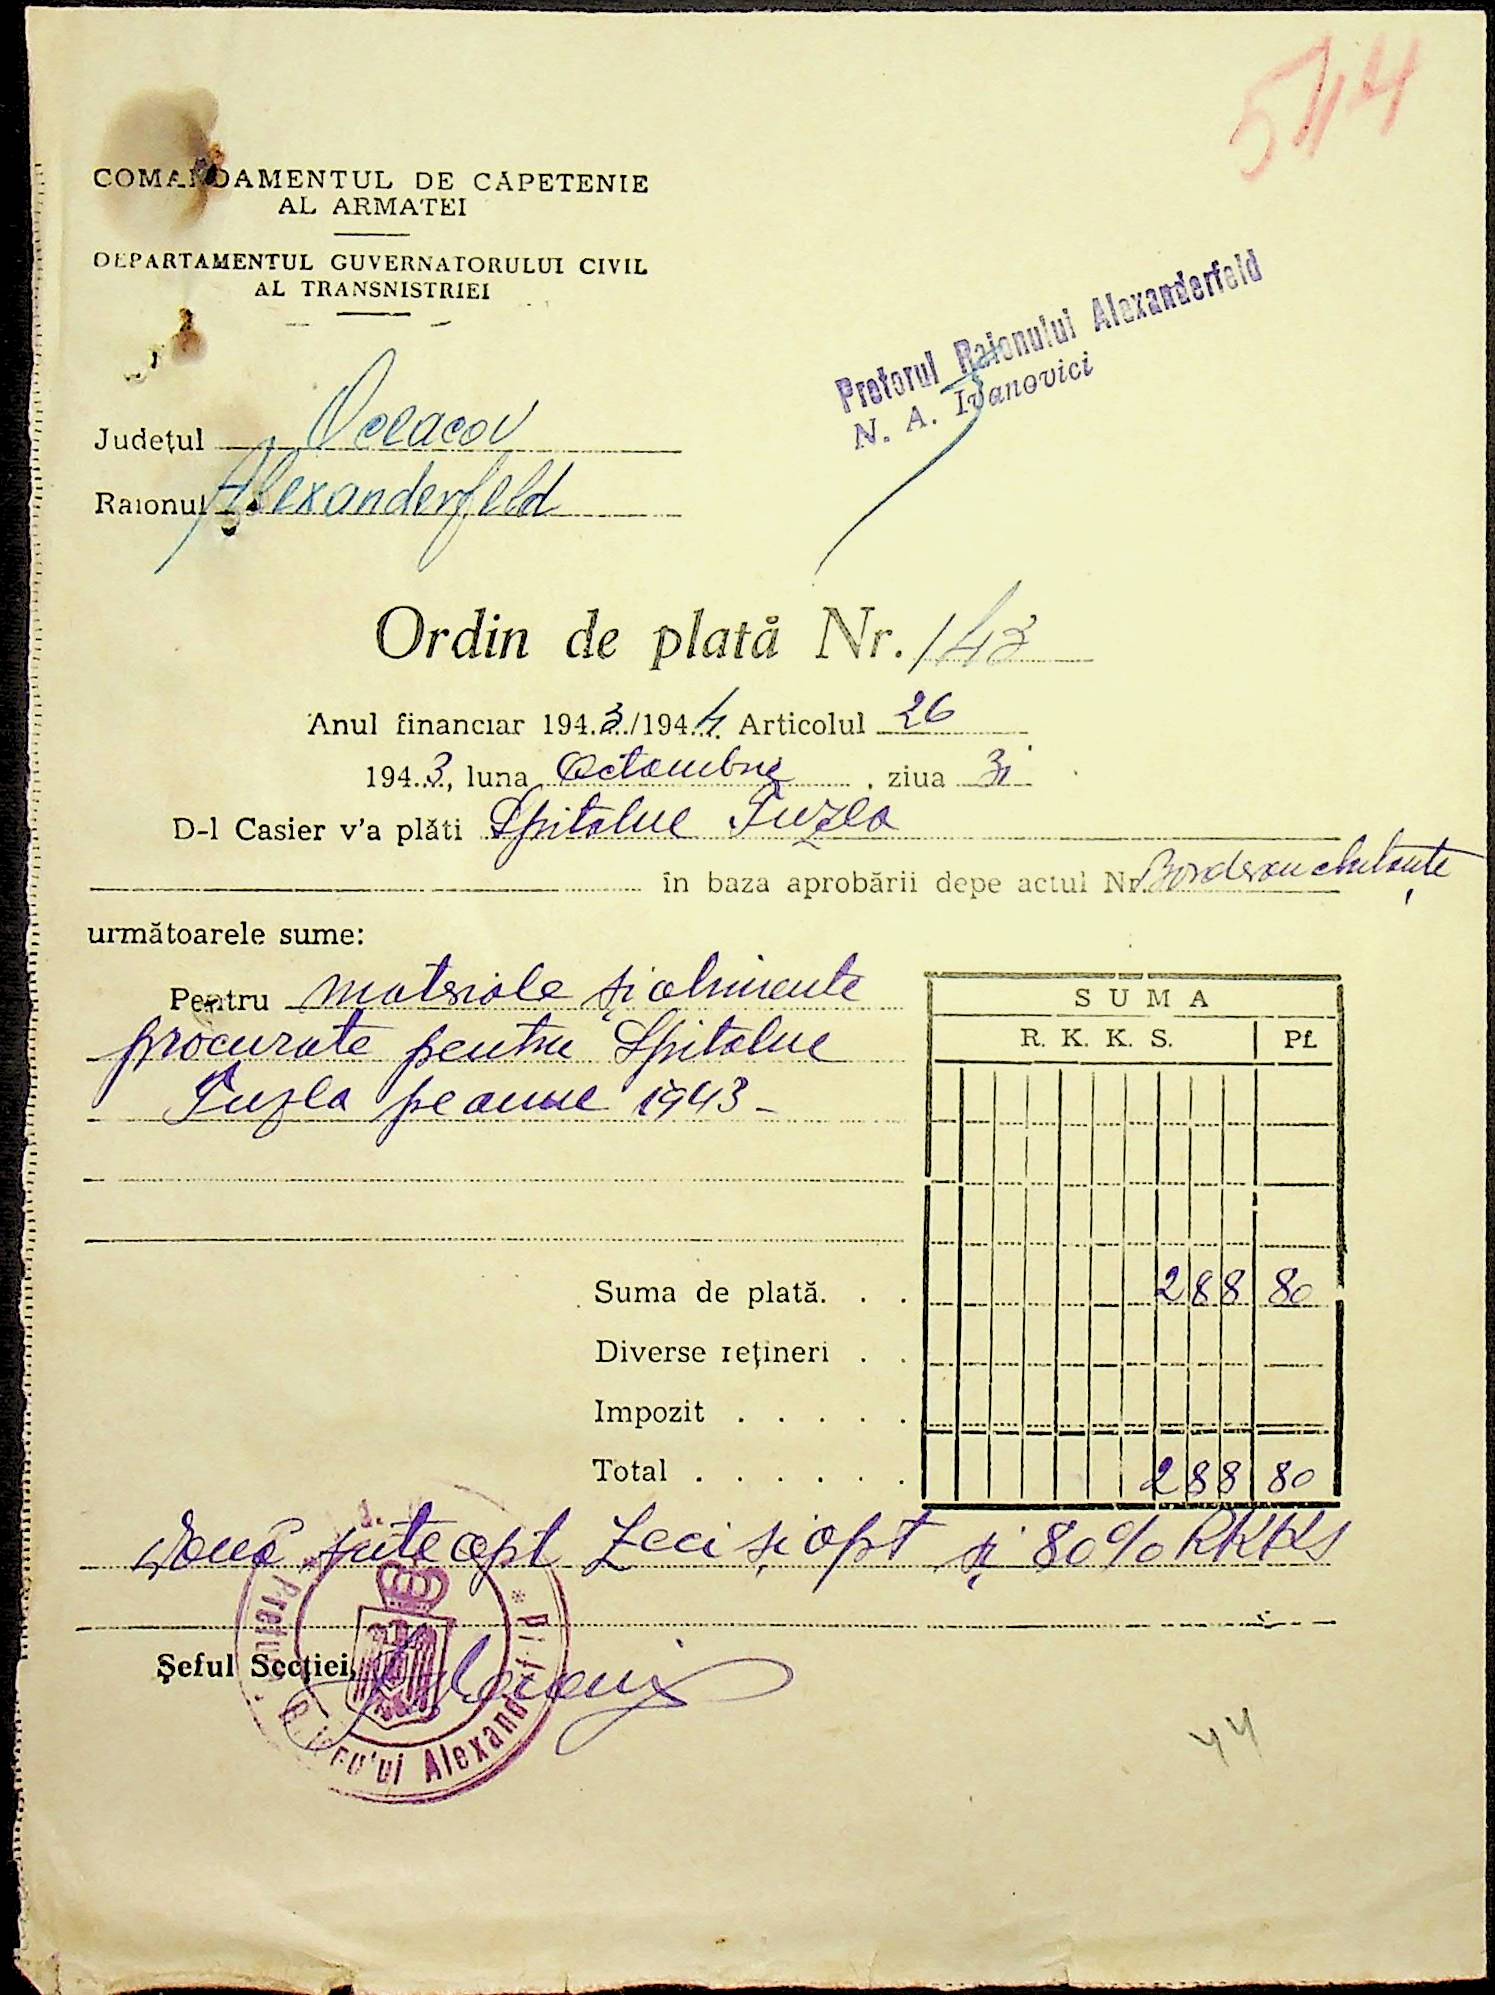 544
COMANDAMENTUL DE CAPETENIE
AL ARMATEI
DEPARTAMENTUL GUVERNATORULUI CIVIL
AL TRANSNISTRIEI
Pretorul Raionului Alexanderfeld
N. A. Ivanovici
Județul Oceacov
Raionul Alexanderfeld
Ordin de plată Nr. 143
Anul financiar 1943/1944 Articolul 26
1943, luna Octombrie, ziua 31
D-l Casier v'a plăti Spitalul Tuzla
în baza aprobării depe actul Nr. Borderou chitanțe
următoarele sume:
Pentru materiale și alimente
procurate pentru Spitalul
Tuzla pe anul 1943 -
SUMA
R. K. K. S. Pf.
Suma de plată. . . 288 80
Diverse rețineri . .
Impozit . . . . .
Total . . . . . . 288 80
Două sute opt zeci și opt și 80% RKKS
Șeful Secției,
Alexand
44